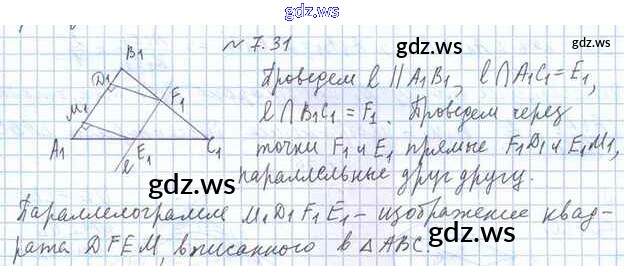 gdz.ws
№ 7.31
gdz.ws
B1
D1
F1
M1
A1
E1
C1
l
Проведем l || A1B1, l ∩ A1C1 = E1,
l ∩ B1C1 = F1. Проведем через
точки F1 и E1 прямые F1D1 и E1M1,
параллельные друг другу.
gdz.ws
gdz.ws
Параллелограмм M1D1F1E1 – изображение квад-
рата DFEM, вписанного в △ABC.
gdz.ws